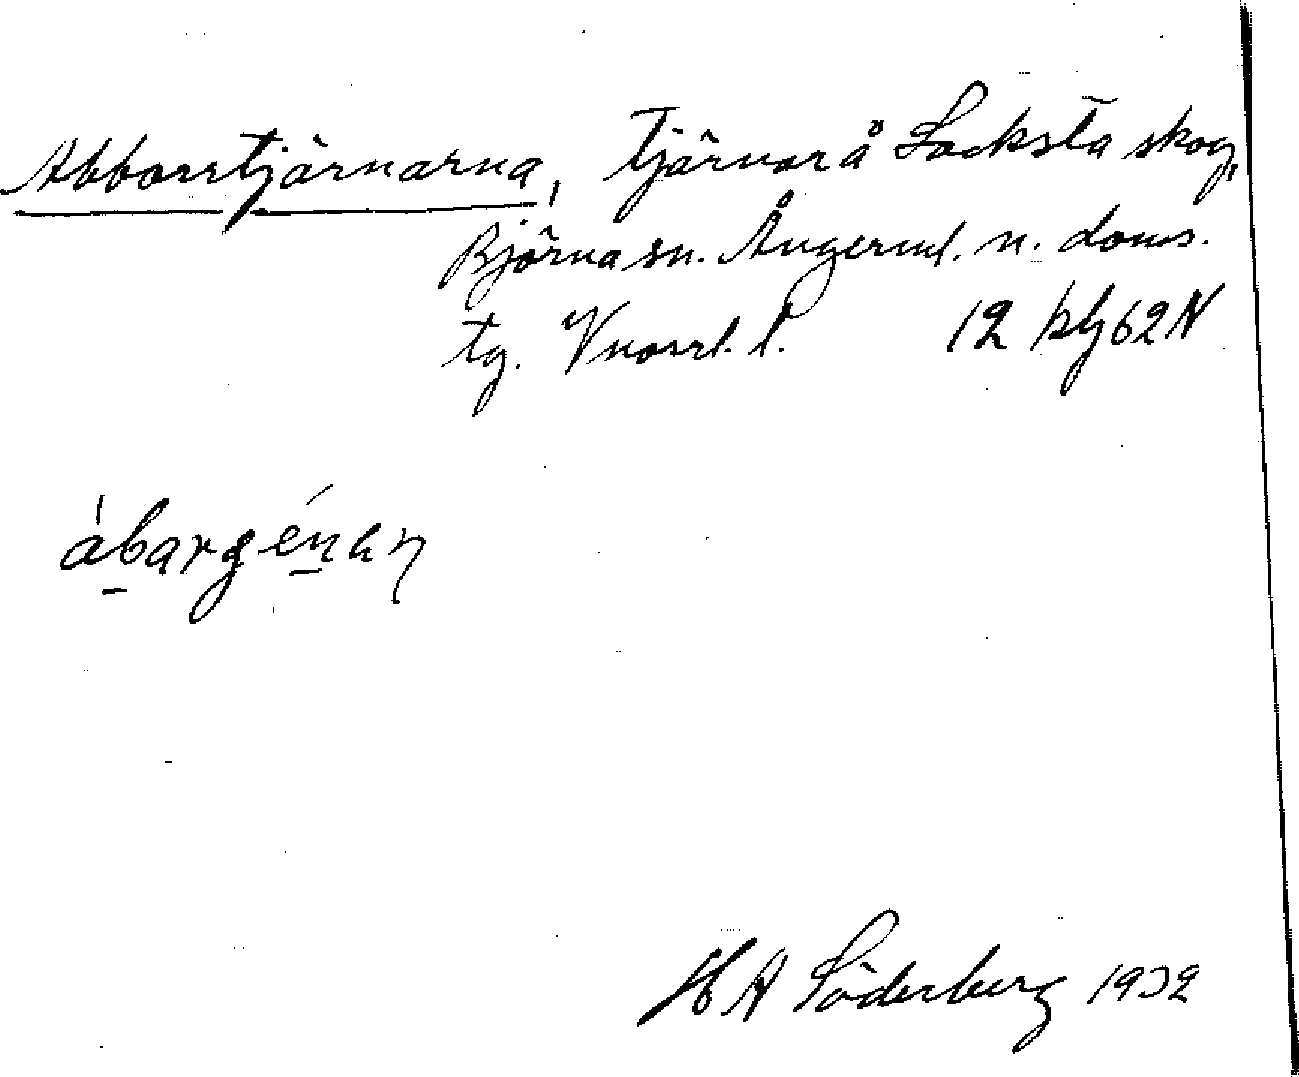 Abborrtjärnarna, Tjärnar å Locksta skog,
Björna sn. Ångerml. n. doms.
tg. Vnorrl. l. 12 blg 62 N
ábargénan
H A Söderberg 1932